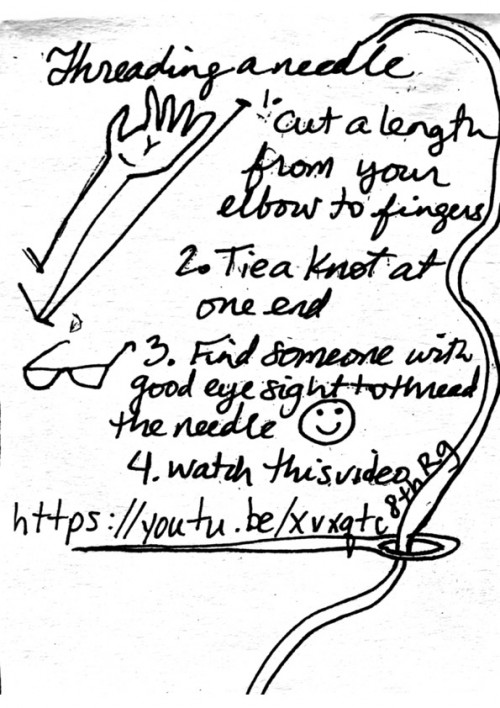 Threading a needle
1. Cut a length
from your
elbow to fingers
2. Tie a knot at
one end
3. Find someone with
good eye sight to thread
the needle
4. watch this video
https://youtu.be/xvxqtc8thRg